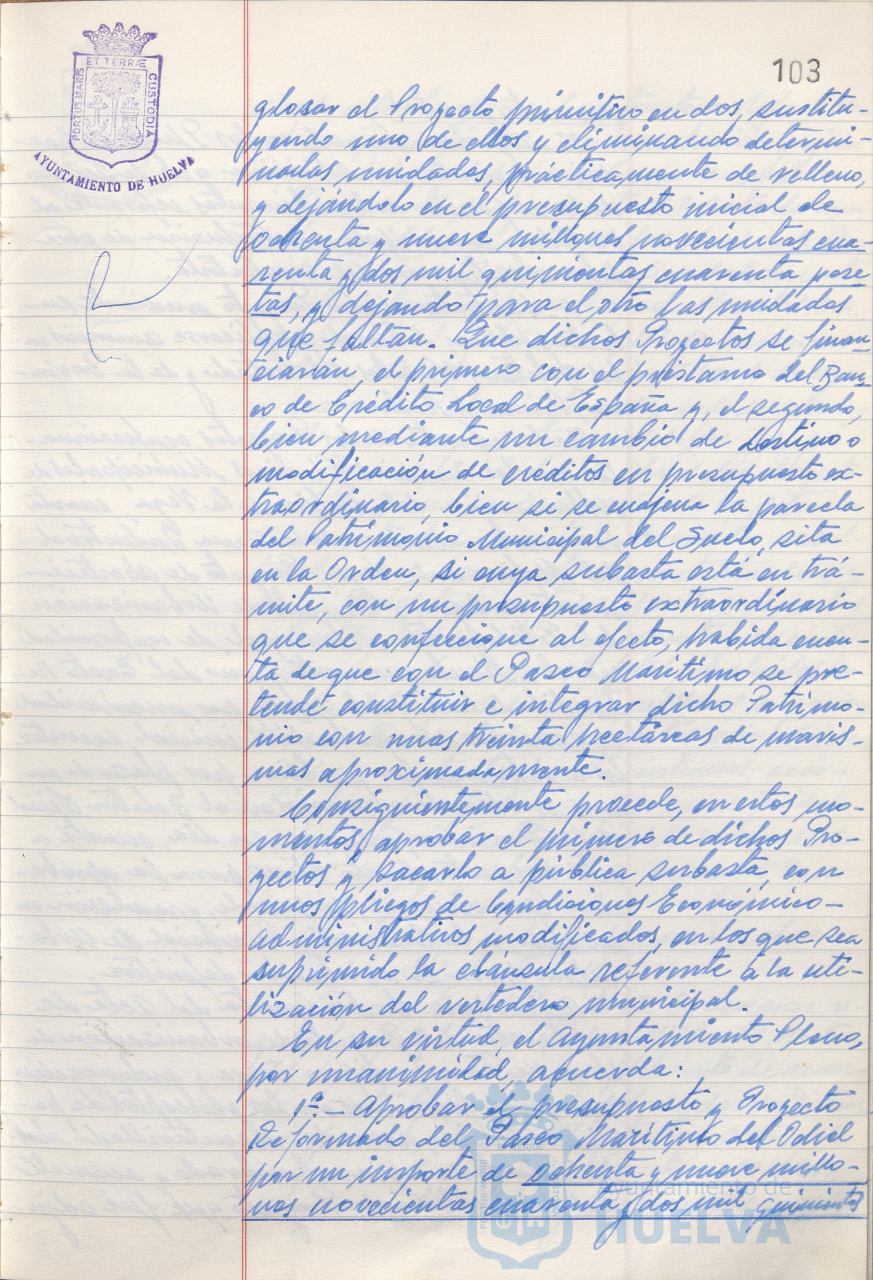 103
PORTUS MARIS ET TERRÆ CUSTODIA
AYUNTAMIENTO DE HUELVA
glosar el Proyecto primitivo en dos, sustitu-
yendo uno de ellos y eliminando determi-
nadas unidades, prácticamente de relleno,
y dejándolo en el presupuesto inicial de
ochenta y nueve millones novecientas cua-
renta y dos mil quinientas cuarenta pese
tas, y dejando para el otro las unidades
que faltan. Que dichos Proyectos se finan-
ciarán, el primero con el préstamo del Ban-
co de Crédito Local de España y, el segundo,
bien mediante un cambio de destino o
modificación de créditos en presupuesto ex-
traordinario, bien si se enajena la parcela
del Patrimonio Municipal del Suelo, sita
en la Orden, si cuya subasta está en trá-
mite, con un presupuesto extraordinario
que se confeccione al efecto, habida cuen-
ta de que con el Paseo Marítimo se pre-
tende constituir e integrar dicho Patrimo-
nio con unas treinta hectáreas de maris-
mas aproximadamente.
Consiguientemente procede, en estos mo-
mentos, aprobar el primero de dichos Pro-
yectos y sacarlo a pública subasta, con
unos pliegos de Condiciones Económico-
administrativas modificados, en los que sea
suprimido la cláusula referente a la uti-
lización del vertedero municipal.
En su virtud, el Ayuntamiento Pleno,
por unanimidad, acuerda:
1º.- Aprobar el presupuesto y Proyecto
Reformado del Paseo Marítimo del Odiel
por un importe de ochenta y nueve millo-
nes novecientas cuarenta y dos mil quinientas
Ayuntamiento de
HUELVA